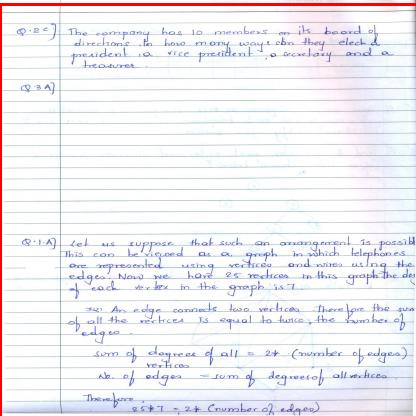 Q.2C] The company has 10 members on its board of
directions. In how many ways can they elect a
president, a vice president, a secretary and a
treasurer.
Q3A]
Q.1.A] Let us suppose that such an arrangement is possibl
This can be viewed as a graph in which telephones
are represented using vertices and wires using the
edges. Now we have 25 vertices in this graph the deg
of each vertex in the graph is 7.
An edge connects two vertices. Therefore the sum
of all the vertices is equal to twice, the number of
edges.
sum of degrees of all = 2* (number of edges)
vertices
No. of edges = sum of degrees of all vertices.
Therefore,
25*7 = 2* (number of edges)